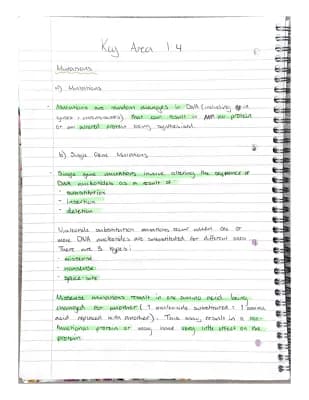 Key Area 1.4
Mutations
a) Mutations
Mutations are random changes in DNA (including in
genes + chromosomes) that can result in no protein
or an altered protein being synthesised.
b) Single Gene Mutations
Single gene mutations involve altering the sequence of
DNA nucleotides as a result of
- substitution
- insertion
- deletion
Nucleotide substitution mutations occur when one or
more DNA nucleotides are substituted for different ones
There are 3 types:
- missense
- nonsense
- splice-site
Missense mutations result in one amino acid being
changed for another (1 nucleotide substituted = 1 amino
acid replaced with another). This may result in a non-
functional protein or may have very little effect on the
protein